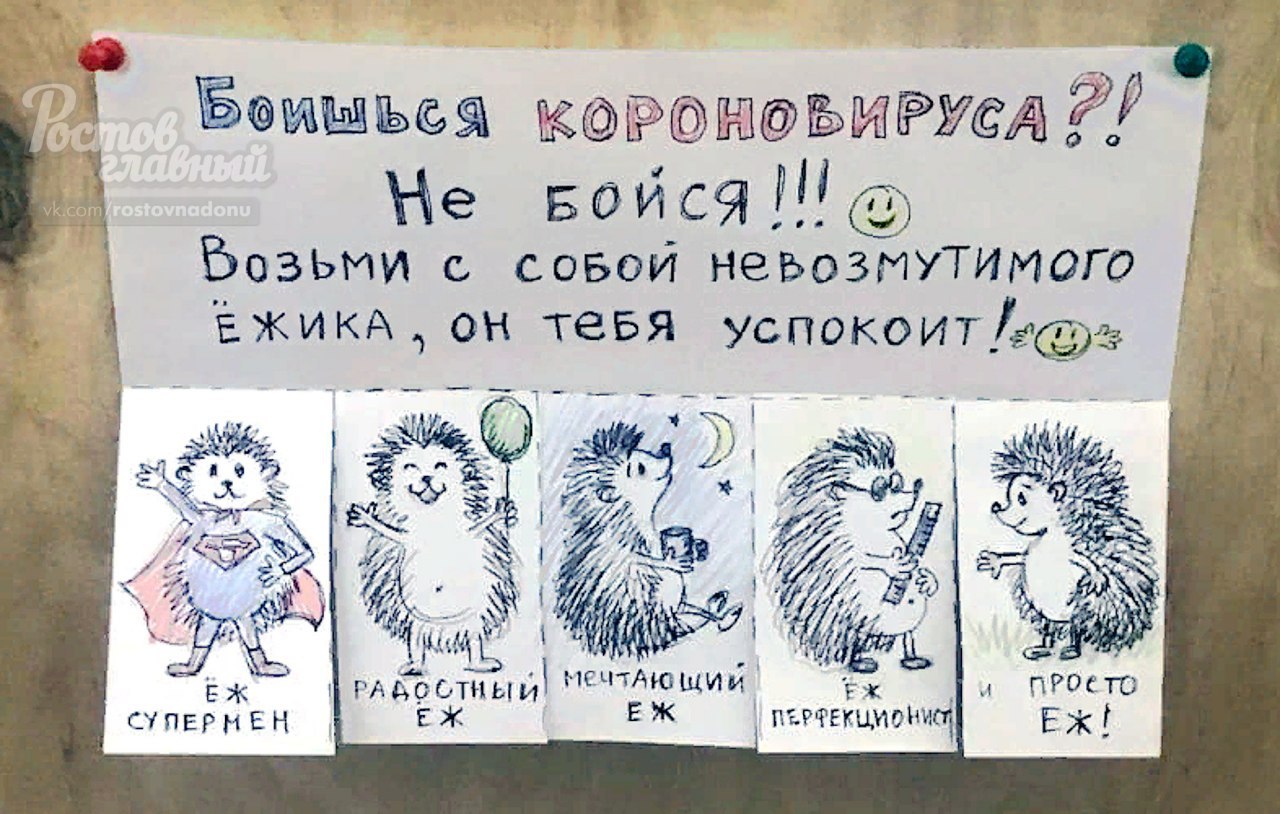 Ростов
главный
vk.com/rostovnadonu
Боишься КОРОНОВИРУСА?!
Не бойся!!!
Возьми с собой невозмутимого
ёжика, он тебя успокоит!
ЁЖ
СУПЕРМЕН
РАДОСТНЫЙ
ЁЖ
МЕЧТАЮЩИЙ
ЁЖ
ЁЖ
ПЕРФЕКЦИОНИСТ
и ПРОСТО
ЁЖ!